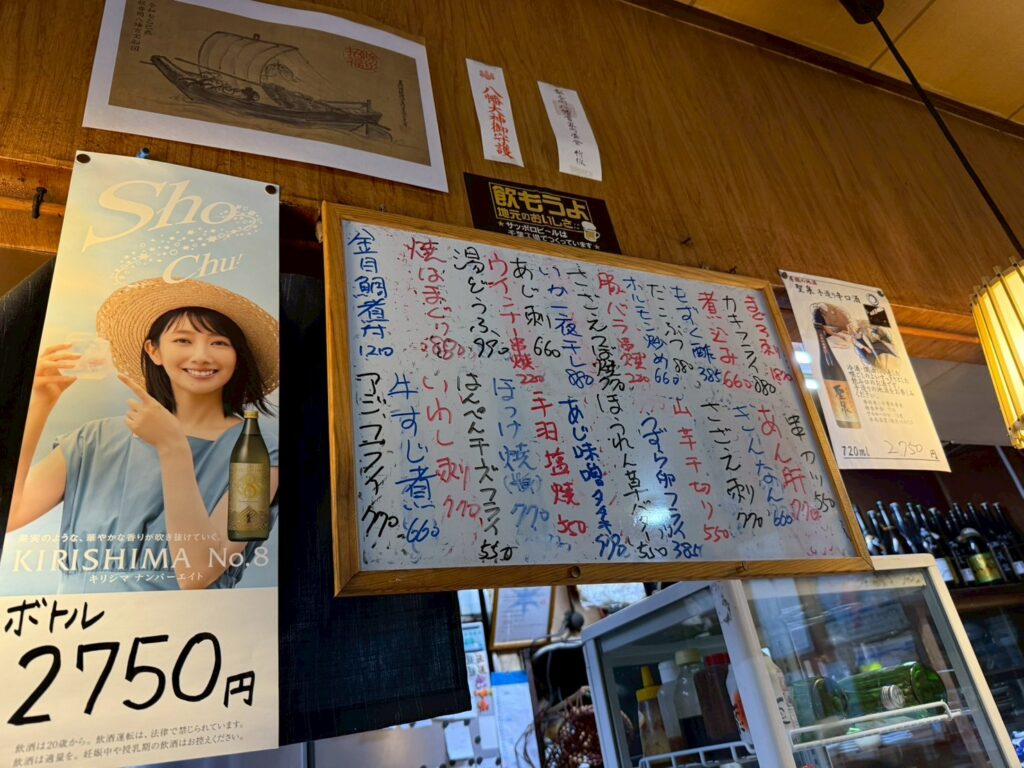 Sho
Chu!
果実のような、華やかな香りが吹き抜けていく。
KIRISHIMA No.8
キリシマ ナンバーエイト
ボトル
2750円
飲酒は20歳から。飲酒運転は、法律で禁じられています。
飲酒は適量を。妊娠中や授乳期の飲酒はお控えください。
八幡大神御守護
飲もうよ
地元のおいしさ
★サッポロビールは
千葉工場でつくっています★
まぐろ刺
カキフライ 880
煮込み 660
もずく酢 385
たこぶつ 880
オルモン炒め 660
豚バラ串焼 220
さざえつぼ焼
いか一夜干し 880
あじ刺 660
ウインナー串焼 220
湯どうふ 990
焼はまぐり 880
金目鯛煮付 1210
串カツ 550
あん肝 770
さんなん 660
さざえ刺 770
山芋千切り 550
うずら卵フライ 385
ほうれん草バター 550
あじ味噌タタキ 770
手羽塩焼 550
ほっけ焼 770
はんぺんチーズフライ 550
いわし刺 770
牛すじ煮 660
アジフライ 770
聖泉 手造り辛口酒
720ml 2750円